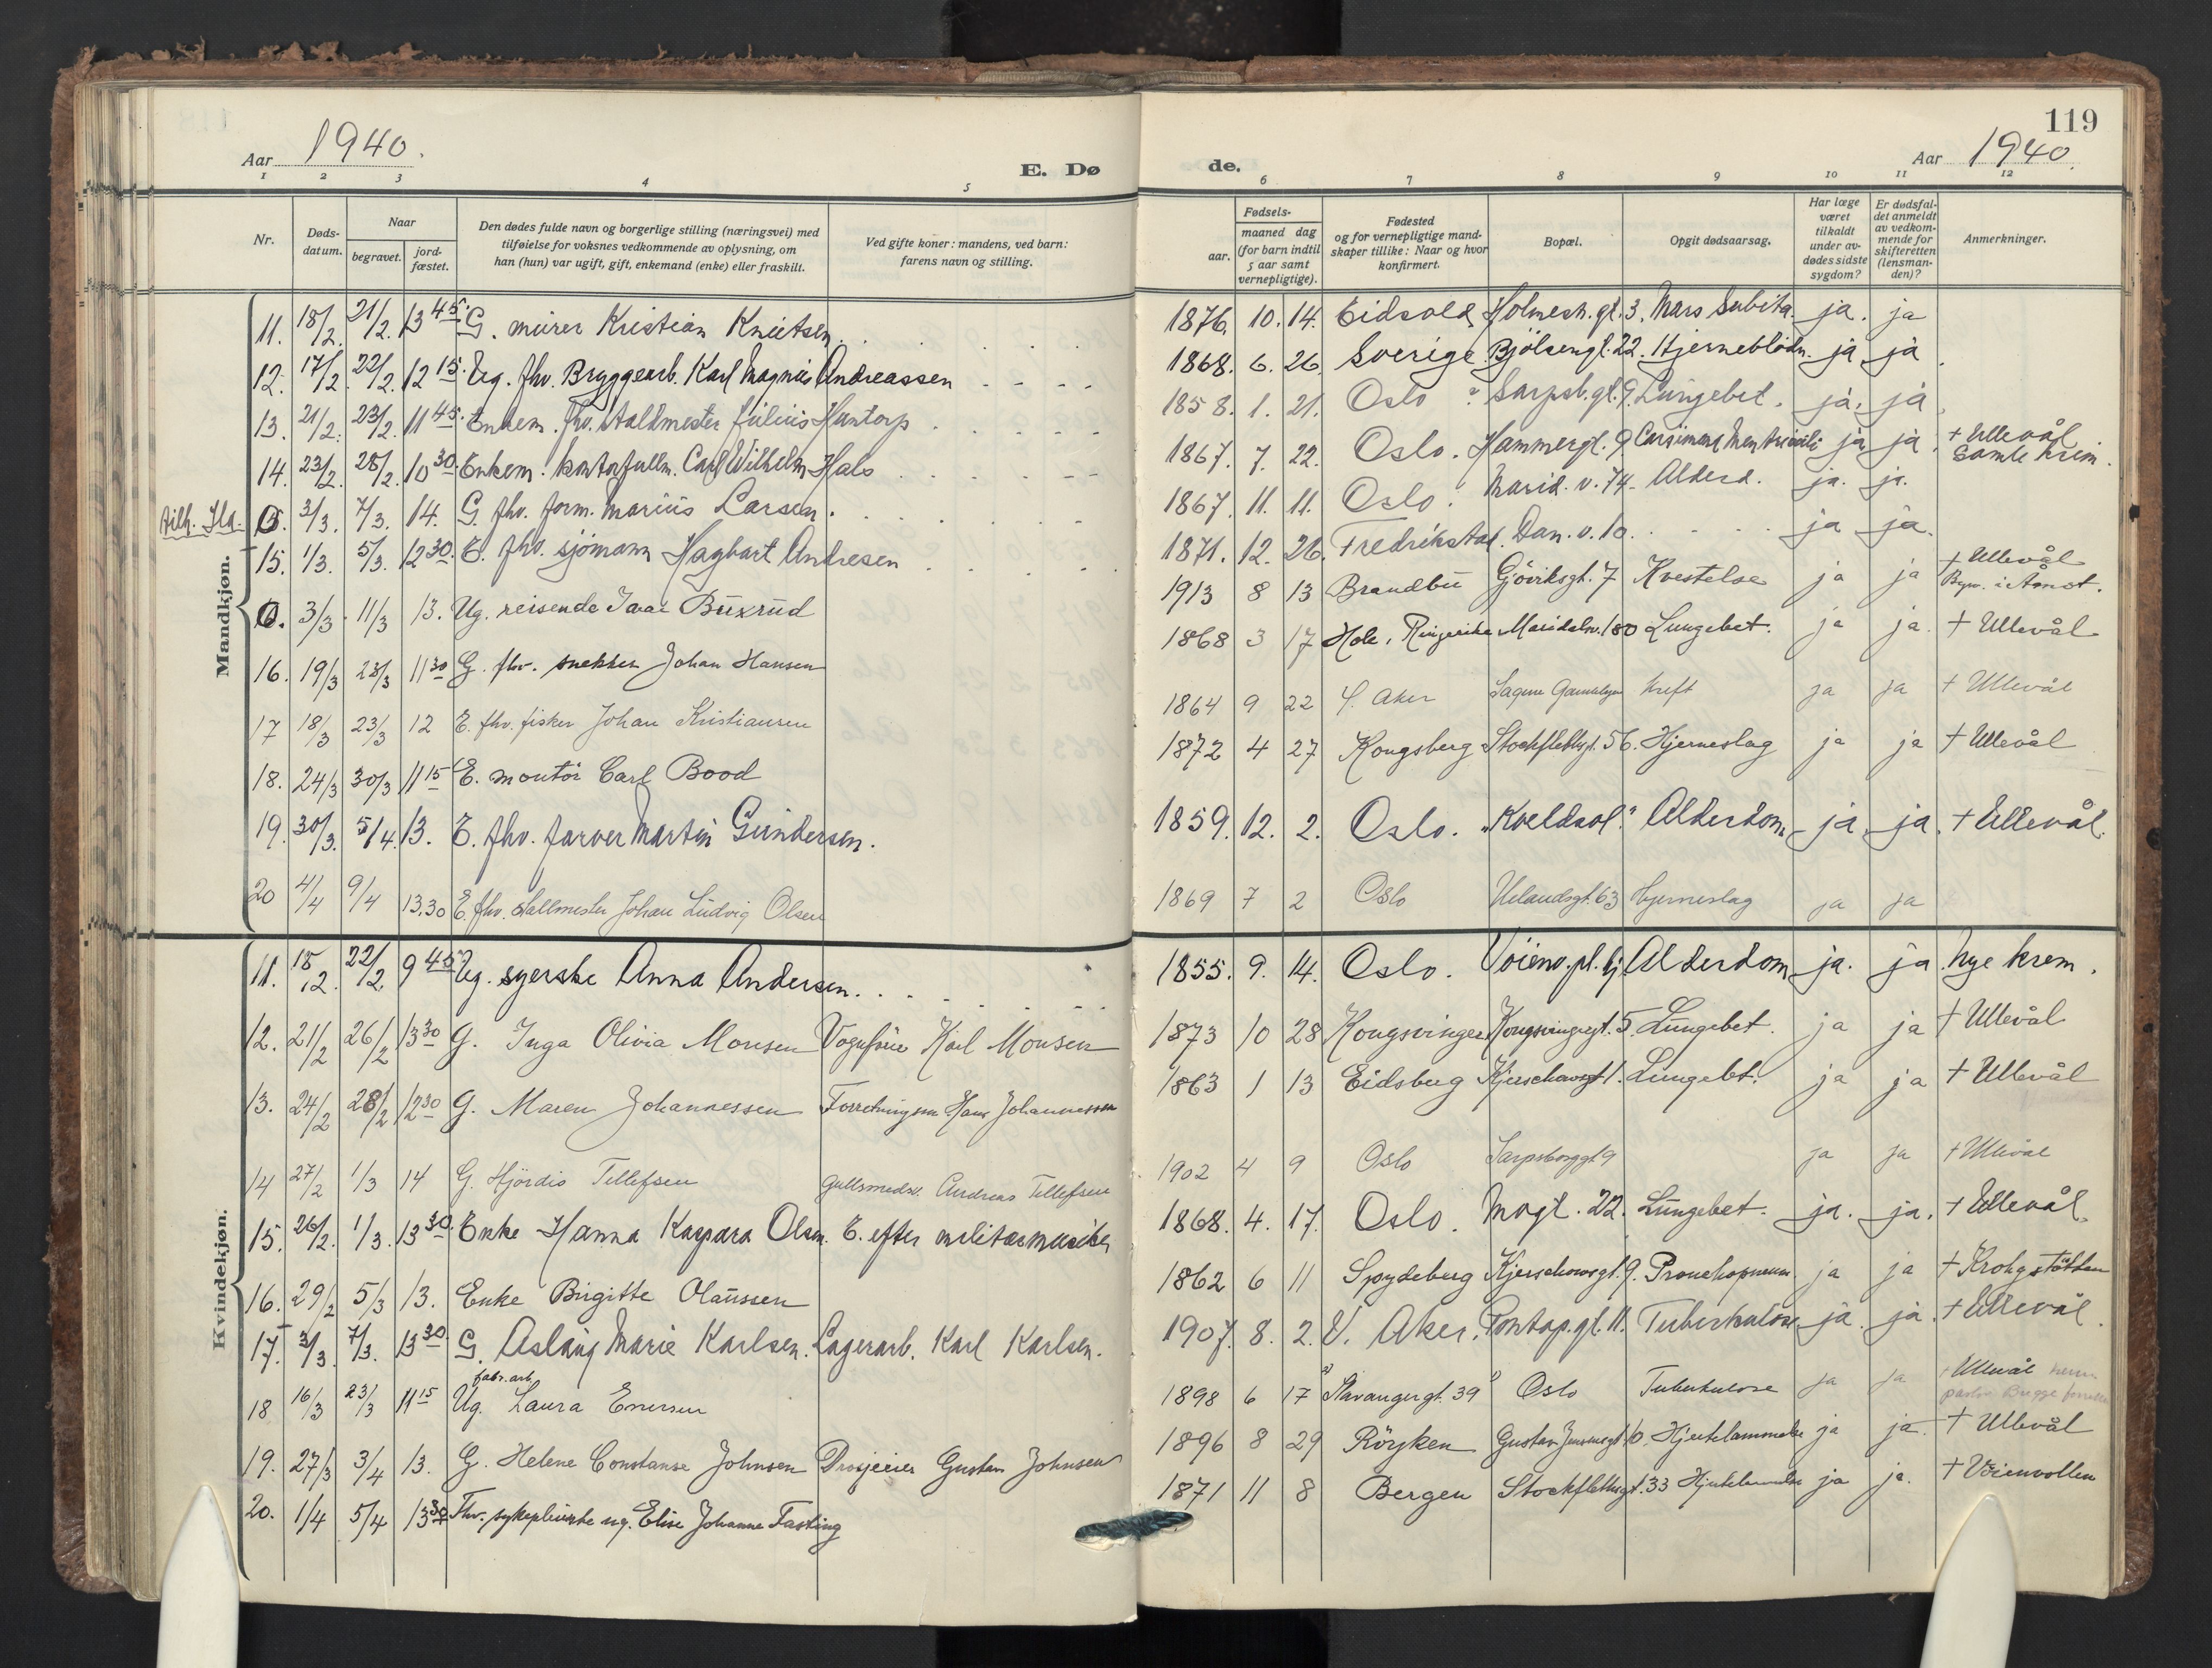 119
Aar 1940.
E. Dø
de.
Aar 1940.
1 2 3 4 5 6 7 8 9 10 11 12
Nr.
Døds-
datum.
Naar
begravet.
jord-
fæstet.
Den dødes fulde navn og borgerlige stilling (næringsvei) med
tilføielse for voksnes vedkommende av oplysning, om
han (hun) var ugift, gift, enkemand (enke) eller fraskilt.
Ved gifte koner: mandens, ved barn:
farens navn og stilling.
Fødsels-
aar.
maaned dag
(for barn indtil
5 aar samt
vernepligtige).
Fødested
og for vernepligtige mand-
skaper tillike: Naar og hvor
konfirmert.
Bopæl.
Opgit dødsaarsag.
Har læge
været
tilkaldt
under av-
dødes sidste
sygdom?
Er dødsfal-
det anmeldt
av vedkom-
mende for
skifteretten
(lensman-
den)?
Anmerkninger.
Mandkjøn.
11. 18/2. 21/2. 13 45. G. murer Kristian Knutsen. 1876. 10. 14. Eidsvold Holmesh. gt. 3. Mors Subita. ja. ja
12. 17/2. 22/2. 12 15. Ug. fhv. Bryggearb. Karl Magnus Andreassen 1868. 6. 26. Sverige. Bjölsengt. 22. Hjerneblödn. ja ja
13. 21/2. 23/2. 11 45. Enkem. fhv. staldmester Julius Huntorp 1858. 1. 21. Oslo Sarpsb. gt. 9. Lungebet. ja. ja
14. 23/2. 28/2. 10 30. Enkem. kontorfullm. Carl Wilhelm Hals 1867. 7. 22. Oslo. Hammergt. 9 ja ja + Ullevål
Gamle krem.
tilh. Ila. 3/3. 7/3. 14. G. fhv. form. Marius Larsen. 1867. 11. 11. Oslo. Marid. v. 74. Alderd. ja. ja.
15. 1/3. 5/3. 12 30. E. fhv. sjömann Hagbart Andresen 1871. 12. 26. Fredrikstad. Dan. v. 10. ja ja.
0. 3/3 11/3 13. Ug. reisende Ivar Buxrud 1913 8 13 Brandbu Gjöviksgt. 7 Kvestelse ja ja + Ullevål
16. 19/3 23/3 11 30 G. fhv. snekker Johan Hansen 1868 3 17 Hole, Ringerike Maridalsv. 180 Lungebet. ja ja. + Ullevål
17 18/3 23/3 12 E. fhv. fisker Johan Kristiansen 1864 9 22 Aker Sagene Gamlehjem kreft ja ja + Ullevål
18. 24/3 30/3 11 15 E. montör Carl Bood 1872 4 27 Kongsberg Stockflethsgt. 56. Hjerneslag ja ja + Ullevål
19. 30/3. 5/4. 13. E. fhv. farver Martin Gundersen. 1859. 12. 2. Oslo. "Kveldsol." Alderdom. ja ja. + Ullevål.
20 4/4 9/4 13.30 E. fhv. stallmester Johan Ludvig Olsen 1869 7 2 Oslo Uelandsgt. 63 Hjerneslag ja ja
Kvindekjøn.
11. 18/2 22/2 9 45. Ug. syerske Anna Andersen. 1855. 9. 14. Oslo. Vöiens. pl. 4 Alderdom ja. ja. Nye krem.
12. 21/2 26/2 13 30 G. Inga Olivia Monsen Vognfører Karl Monsen 1873 10 28 Kongsvinger Kongsvingergt. 5. Lungebet. ja ja + Ullevål
13. 24/2 28/2 12 30 G. Maren Johannessen Forretningsm. Hans Johannessen 1863 1 13 Eidsberg Kjerschowsgt 1. Lungebt. ja ja + Ullevål
14 27/2 1/3 14 G. Hjördis Tellefsen Gullsmedsv. Andreas Tellefsen 1902 4 9 Oslo Sarpsborggt 9 ja ja + Ullevål
15. 26/2. 1/3. 13 30. Enke Hanna Kaspara Olsen. E. efter militærmusiker 1868. 4. 17. Oslo. Mogt. 22. Lungebet. ja. ja. + Ullevål.
16. 29/2 5/3 13. Enke Birgitte Olaussen 1862 6 11 Spydeberg Kjerschowsgt. 9. Bronchopneum. ja ja + Krohgstötten
17. 3/3. 7/3. 13 30. G. Aslaug Marie Karlsen. Lagerarb. Karl Karlsen. 1907. 8. 2. V. Aker. Pontop. gt. 11. Tuberkulose ja. ja. + Ullevål.
fabr. arb.
18 16/3 23/3 11 15 Ug. Laura Enersen 1898 6 17 Stavangergt. 39 Oslo Tuberkulose ja ja + Ullevål
19. 27/3 3/4 13. G. Helene Constanse Johnsen Drosjeeier Gustav Johnsen 1896 8 29 Röyken Gustav Jensensgt. 10. Hjertelammelse ja ja. + Ullevål
20. 1/4 5/4 13 30 Fhv. sykepleierske ug. Elise Johanne Fasting 1871 11 8 Bergen Stockflethsgt. 33 Hjertelammelse ja ja. + Vöienvollen